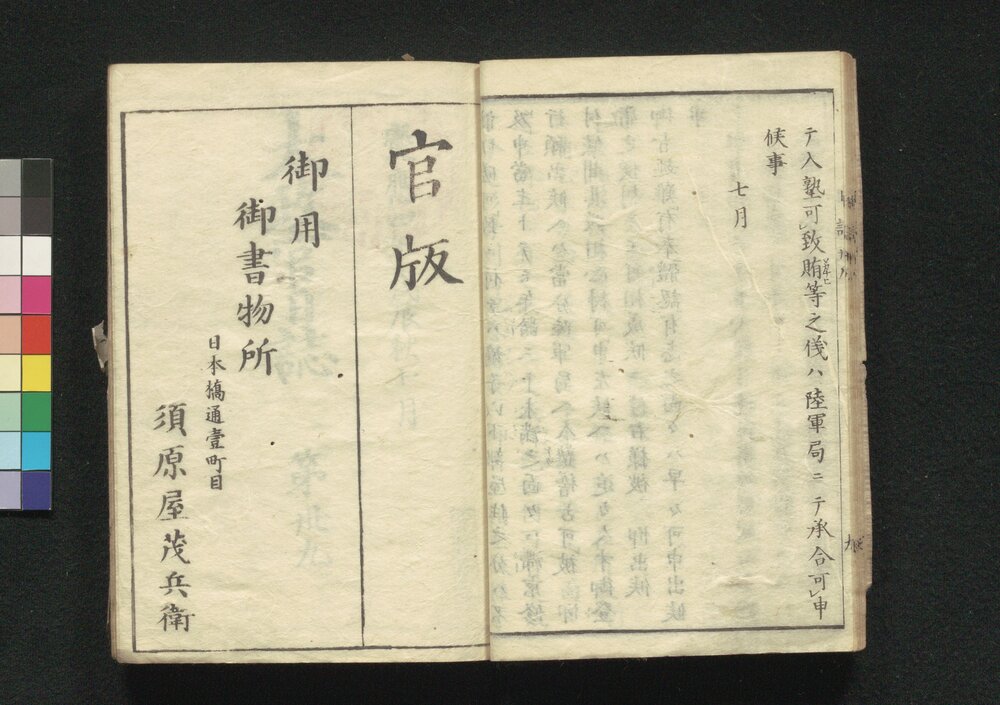 テ入塾可致賄等之儀ハ陸軍局ニテ承合可申
候事
七月
官版
御用
御書物所
日本橋通壹町目
須原屋茂兵衛